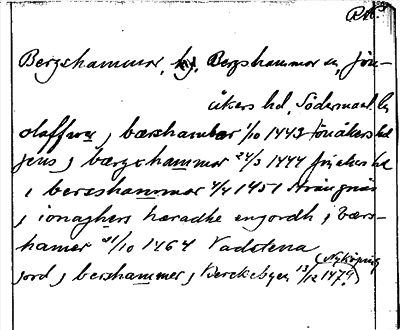 RA:s
Bergshammar, hg. Bergshammar sn, Jön-
åkers hd, Södermanl. l.
olaffwu j bærshambar 1/10 1443 Jönåkers hd
jens j bærgshammer 24/3 1444 Jönåkers hd
i bersshammar 4/4 1451 Strängnäs
j ionaghers haradhe en gordh j bærs-
hamar 21/10 1464 Vadstena
jord j bershammer j Berckebyen 13/12 1474 (Nyköping)